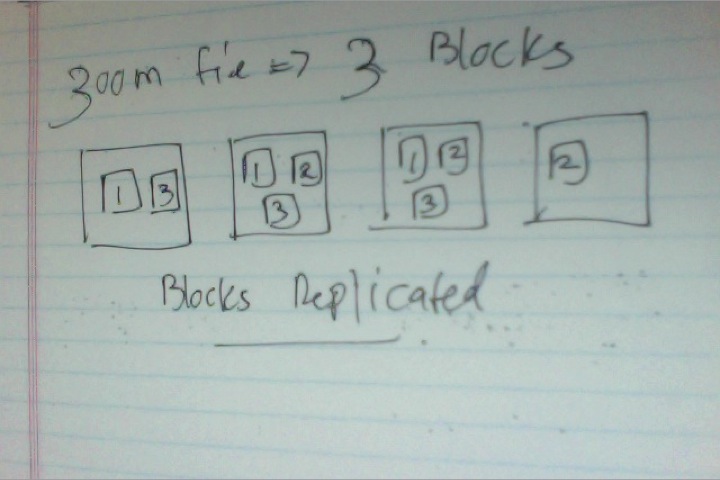 300m file => 3 Blocks
1 3 1 2 3 1 2 3 2
Blocks Replicated